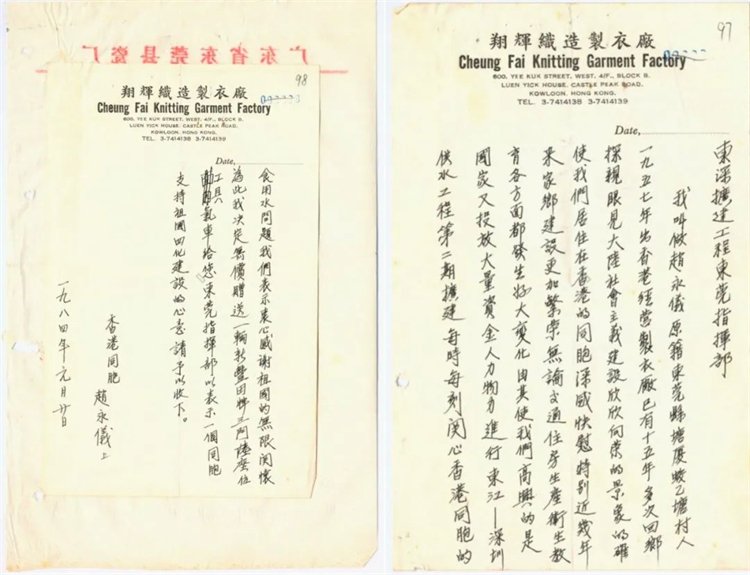 97
翔輝織造製衣廠
Cheung Fai Knitting Garment Factory
600, YEE KUK STREET, WEST, 4/F., BLOCK B.
LUEN YICK HOUSE, CASTLE PEAK ROAD,
KOWLOON, HONG KONG.
TEL. 3-7414138 3-7414139
Date,
東深擴建工程東莞指揮部
我叫做趙永儀原籍東莞縣塘厦蛟乙塘村人
一九五七年出香港經营製衣廠已有十五年多次回鄉
探視眼見大陸社會主義建設欣欣向荣的景象的確
使我們居住在香港的同胞深感快慰特别近幾年
来家鄉建設更加繁荣無論交通住房生産衛生教
育各方面都發生好大變化由其使我們高興的是
國家又投放大量資金人力物力進行東江—深圳
供水工程第二期擴建每時每刻関心香港同胞的
广东省东莞县瓷厂
98
翔輝織造製衣廠
Cheung Fai Knitting Garment Factory
600, YEE KUK STREET, WEST, 4/F., BLOCK B.
LUEN YICK HOUSE, CASTLE PEAK ROAD,
KOWLOON, HONG KONG.
TEL. 3-7414138 3-7414139
Date,
食用水問題我們表示衷心感謝祖國的無限関懷
為此我决定無價贈送一輛新豐田牌三门陸座位
工具氣車给您東莞指揮部以表示一個同胞
支持祖國四化建設的心意請予以收下。
香港同胞
趙永儀上
一九八四年元月廿日